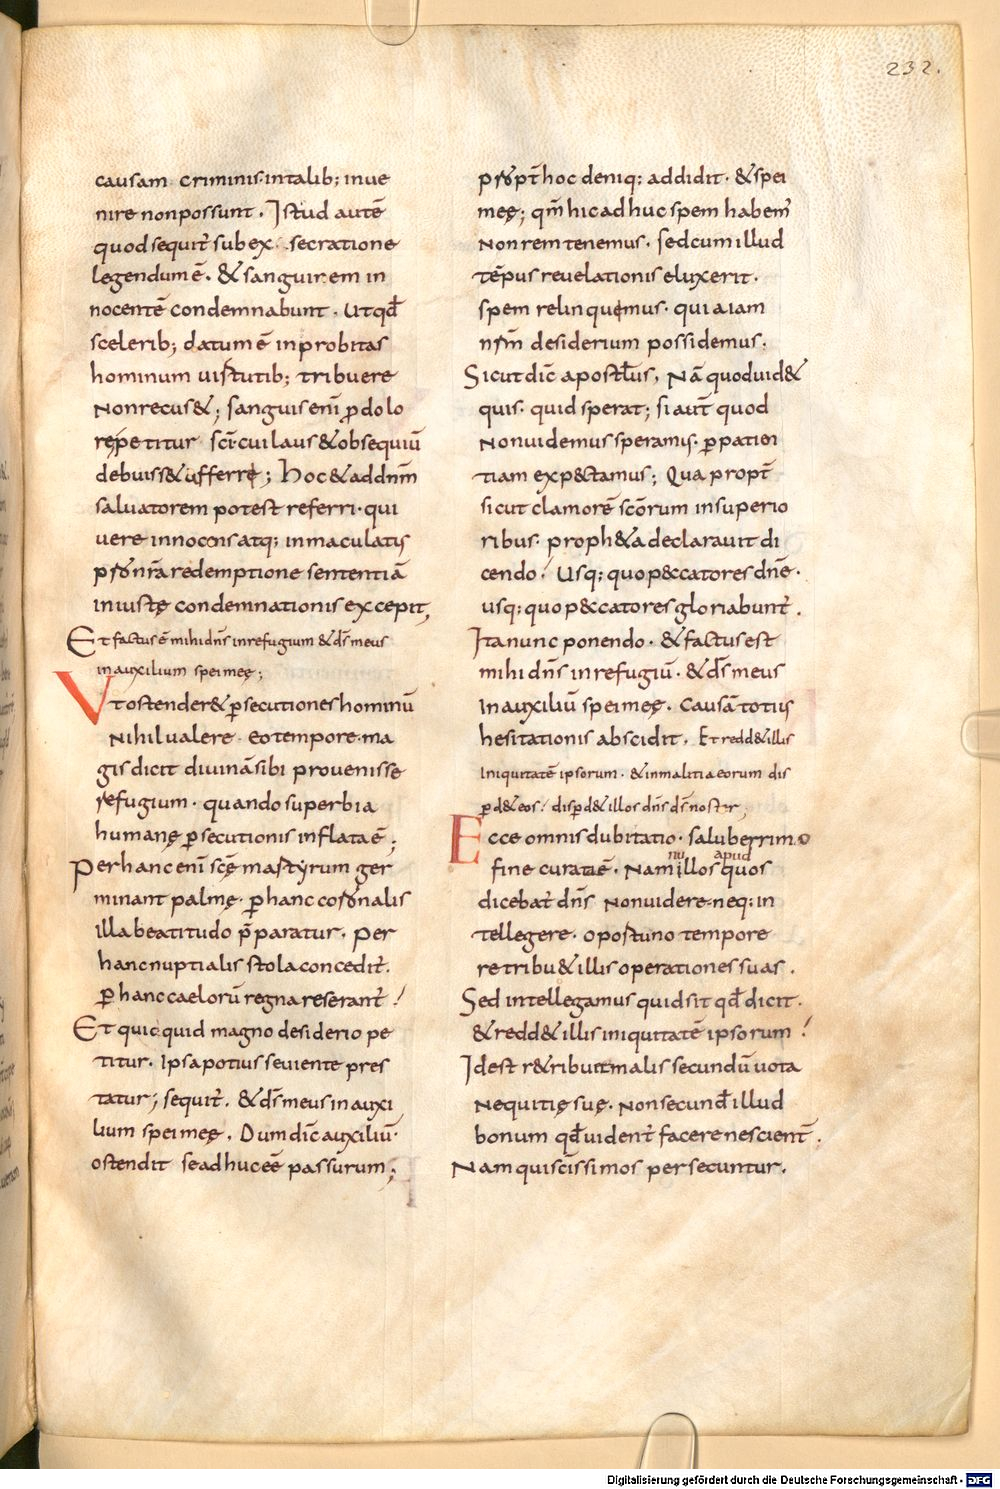 232.
causam criminis· in talib; inue
nire non possunt. Istud autē
quod sequit̄ sub ex secratione
legendum ē. & sanguinem in
nocentē condemnabunt. Utqđ
scelerib; datum ē inprobitas
hominum uirtutib; tribuere
Non recus&; sanguis enī ꝓ dolo
repetitur sc̄i· cui laus & obsequiū
debuiss& offerre; hoc & ad dn̄m
saluatorem potest referri· qui
uere innocens atq; inmaculatis
pro nr̄a redemptione sententiā
iniustę condemnationis excepit,
Et factus ē mihi dn̄s in refugium & ds̄ meus
in auxilium spei meę;
Ut ostender& ꝑsecutiones hominū
Nihil ualere· eo tempore· ma
gis dicit diuinā sibi prouenisse
refugium· quando superbia
humanę ꝑsecutionis inflata ē;
Per hanc enī scę̄ martyrum ger
minant palmę· ꝑ hanc coronalis
illa beatitudo p̄paratur. Per
hanc nuptialis stola concedit̄.
ꝑ hanc caelorū regna reserant̄!
Et quicquid magno desiderio pe
titur. Ipsa potius seuiente pres
tatur; sequit̄. & ds̄ meus in auxi
lium spei meę. Dum dic̄ auxiliū·
ostendit se adhuc eē passurum;
propt̄ hoc deniq; addidit· & spei
meę; qm̄ hic adhuc spem habem̄
Non rem tenemus· sed cum illud
tēpus reuelationis eluxerit.
spem relinquemus· quia iam
nrm̄ desiderium possidemus.
Sicut dic̄ apostl̄us, Nā quod uid&
quis· quid sperat; si aut̄ quod
Non uidemus speramus· ꝑ patien
tiam exp&tamus; Qua propt̄
sicut clamorē sc̄orum in superio
ribus· proph&a declarauit di
cendo! Usq; quo p&ccatores dn̄e·
usq; quo p&ccatores gloriabunt̄.
Ita nunc ponendo· & factus est
mihi dn̄s in refugiū· & ds̄ meus
In auxiliū spei meę. Causā totius
hesitationis abscidit. Et redd& illis
Iniquitatē ipsorum· & in malitia eorum dis
ꝑd& eos! disꝑd& illos dn̄s ds̄ noster;
Ecce omnis dubitatio· saluberrimo
nu apud
fine curata ē. Nam illos quos
dicebat̄ dn̄s Non uidere· neq; in
tellegere· oportuno tempore
retribu& illis operationes suas.
Sed intellegamus quid sit qđ dicit.
& redd& illis iniquitatē ipsorum!
Id est r&ribuit malis secundū uota
Nequitię suę· Non secund̄ illud
bonum qđ uident̄ facere nescient̄.
Nam qui sc̄issimos persecuntur.
Digitalisierung gefördert durch die Deutsche Forschungsgemeinschaft - DFG